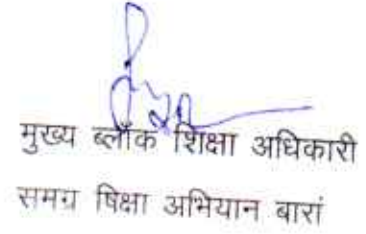 मुख्य ब्लॉक शिक्षा अधिकारी
समग्र षिक्षा अभियान बारां